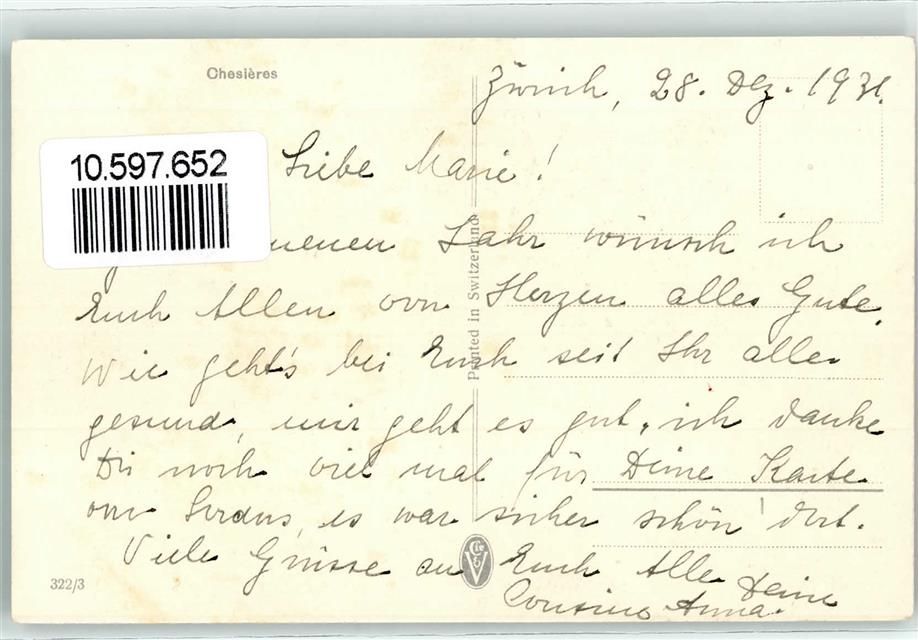 Chesières
Zürich, 28. Dez. 1931.
10.597.652
Liebe Marie!
neuen Jahr wünsch ich
Euch Allen von Herzen alles Gute.
Wie geht's bei Euch seit Ihr alle
gesund, mir geht es gut, ich danke
Dir noch viel mal für Deine Karte
von es war sicher schön dort.
Viele Grüsse an Euch Alle Deine
Cousine Anna.
Printed in Switzerland
322/3